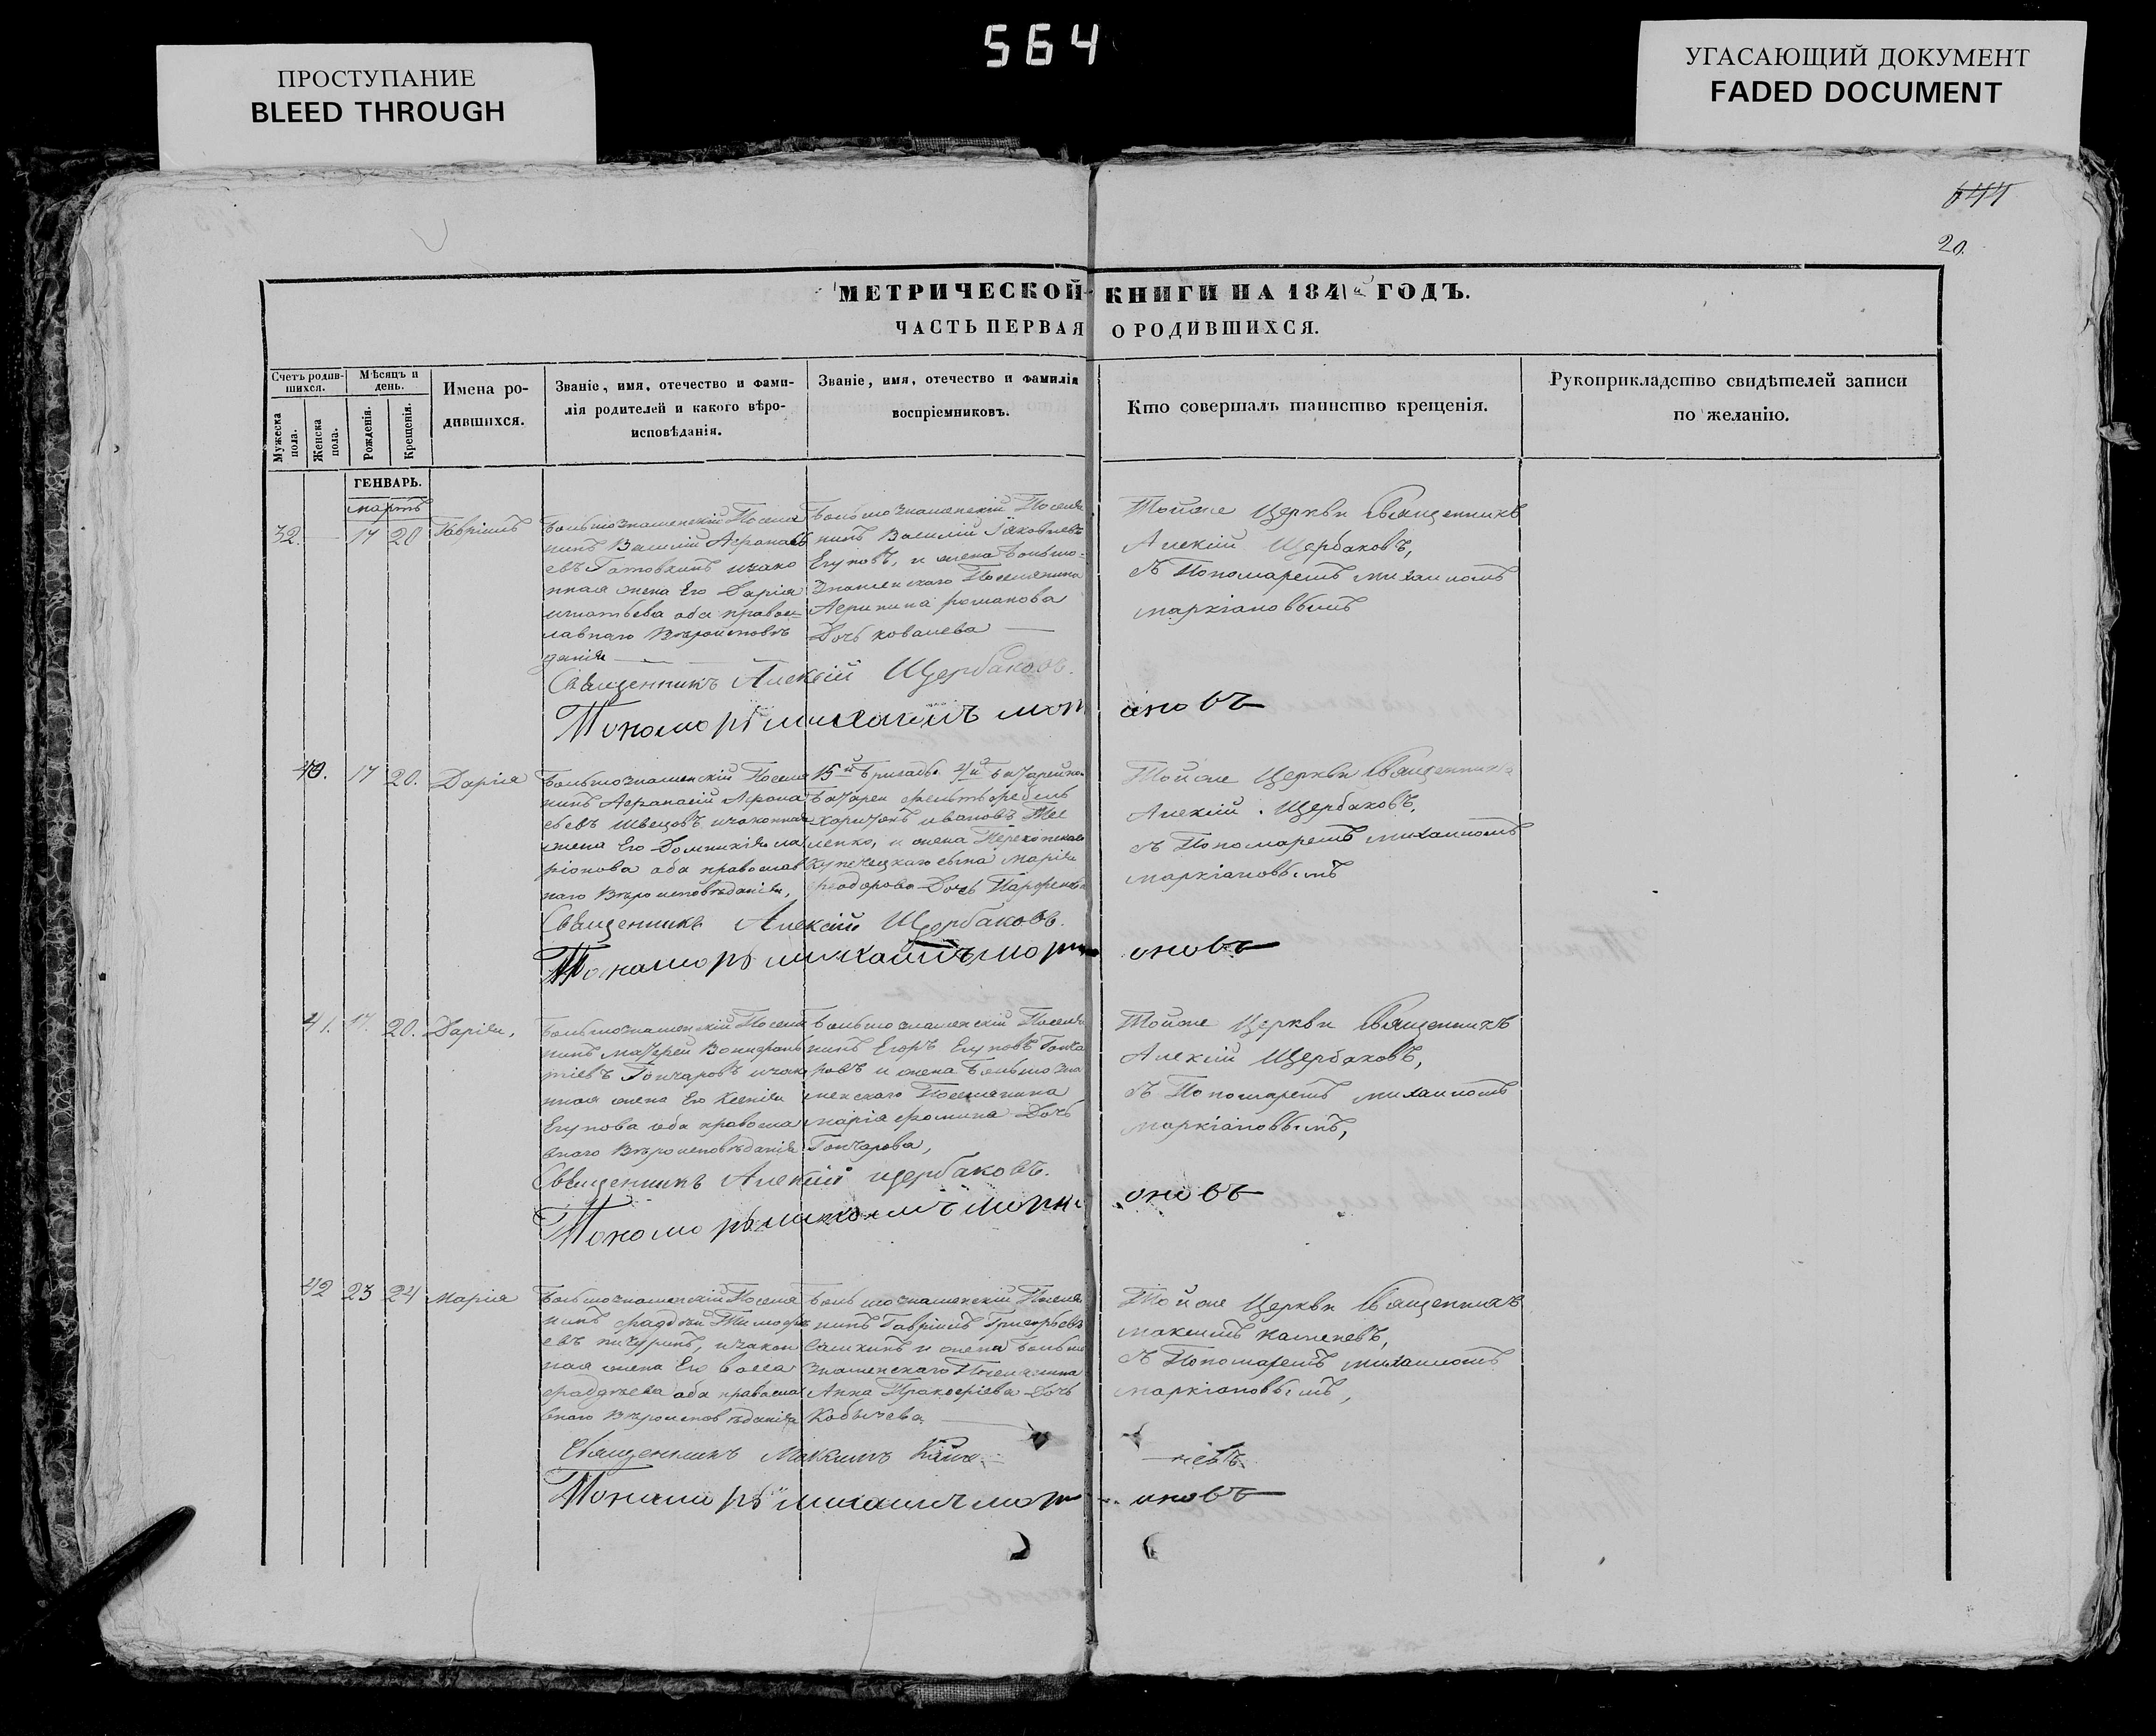 564
ПРОСТУПАНИЕ
BLEED THROUGH
УГАСАЮЩИЙ ДОКУМЕНТ
FADED DOCUMENT
644
20.
МЕТРИЧЕСКОЙ КНИГИ НА 1841й ГОДЪ.
ЧАСТЬ ПЕРВАЯ О РОДИВШИХСЯ.
Счетъ родив-
шихся.
Мужеска пола.
Женска пола.
Мѣсяцъ и
день.
Рожденія.
Крещенія.
Имена ро-
дившихся.
Званіе, имя, отечество и фами-
лія родителей и какого вѣро-
исповѣданія.
Званіе, имя, отечество и фамилія
воспріемниковъ.
Кто совершалъ таинство крещенія.
Рукоприкладство свидѣтелей записи
по желанію.
ГЕНВАРЬ.
мартъ
32. — 17 20 Гавріилъ
Большознаменскій Поселя
нинъ Василій Афанась
евъ Гатовкинъ изако
нная жена Его Дарія
игнатьева оба правос=
лавнаго Вѣроисповѣ
данія
Большознаменскій Поселя
нинъ Василій Іаковлевъ
Егуповъ, и жена Большо=
Знаменскаго Поселянина
Агрипина романова
Дочь ковалева
Тойже Церкви Священникъ
Алексій Щербаковъ,
съ Пономаремъ михаиломъ
маркіановымъ
Священникъ Алексій Щербаковъ.
Пономарь михаилъ маркіановъ
40. 17 20. Дарія
Большознаменскій Поселя
нинъ Афанасій Афона
сьевъ Швецовъ изаконная
жена Его Домникія ла
ріонова оба православ
наго Вѣроисповѣданія,
15й Бригады 4й Батарейной
Батареи фельтфебель
Харитонъ ивановъ
и жена Перекопскаго
Купечецкаго сына Марія
феодорова Дочь
Тойже Церкви Священникъ
Алексій Щербаковъ,
съ Пономаремъ Михаиломъ
маркіановымъ
Священникъ Алексій Щербаковъ.
Пономарь михаилъ маркіановъ
41. 17. 20. Дарія,
Большознаменскій Поселя
нинъ Матфей Вонифан
тіевъ Гончаровъ изако
нная жена Его Ксенія
Егупова оба правосла
внаго Вѣроисповѣданія
Большознаменскій Поселя
нинъ Егоръ Егуповъ Гонча
ровъ и жена Большозна
менскаго Поселянина
марія фомина Дочь
Гончарова,
Тойже Церкви Священникъ
Алексій Щербаковъ,
съ Пономаремъ михаиломъ
маркіановымъ,
Священникъ Алексій щербаковъ.
Пономарь михаилъ маркіановъ
42 23 24 Марія
Большознаменскій Поселя
нинъ фаддѣй Тимофѣ
евъ пичуринъ, изакон
ная жена Его васса
фаддѣева оба правосла
внаго Вѣроисповѣданія
Большознаменскій Поселя
нинъ Гавріилъ Григорьевъ
и жена Большо
знаменскаго Поселянина
Анна Прокофіева Дочь
Кобычева
Тойже Церкви Священникъ
максимъ каменевъ,
съ Пономаремъ михаиломъ
маркіановымъ,
Священникъ Максимъ Каменевъ
Пономарь михаилъ маркіановъ